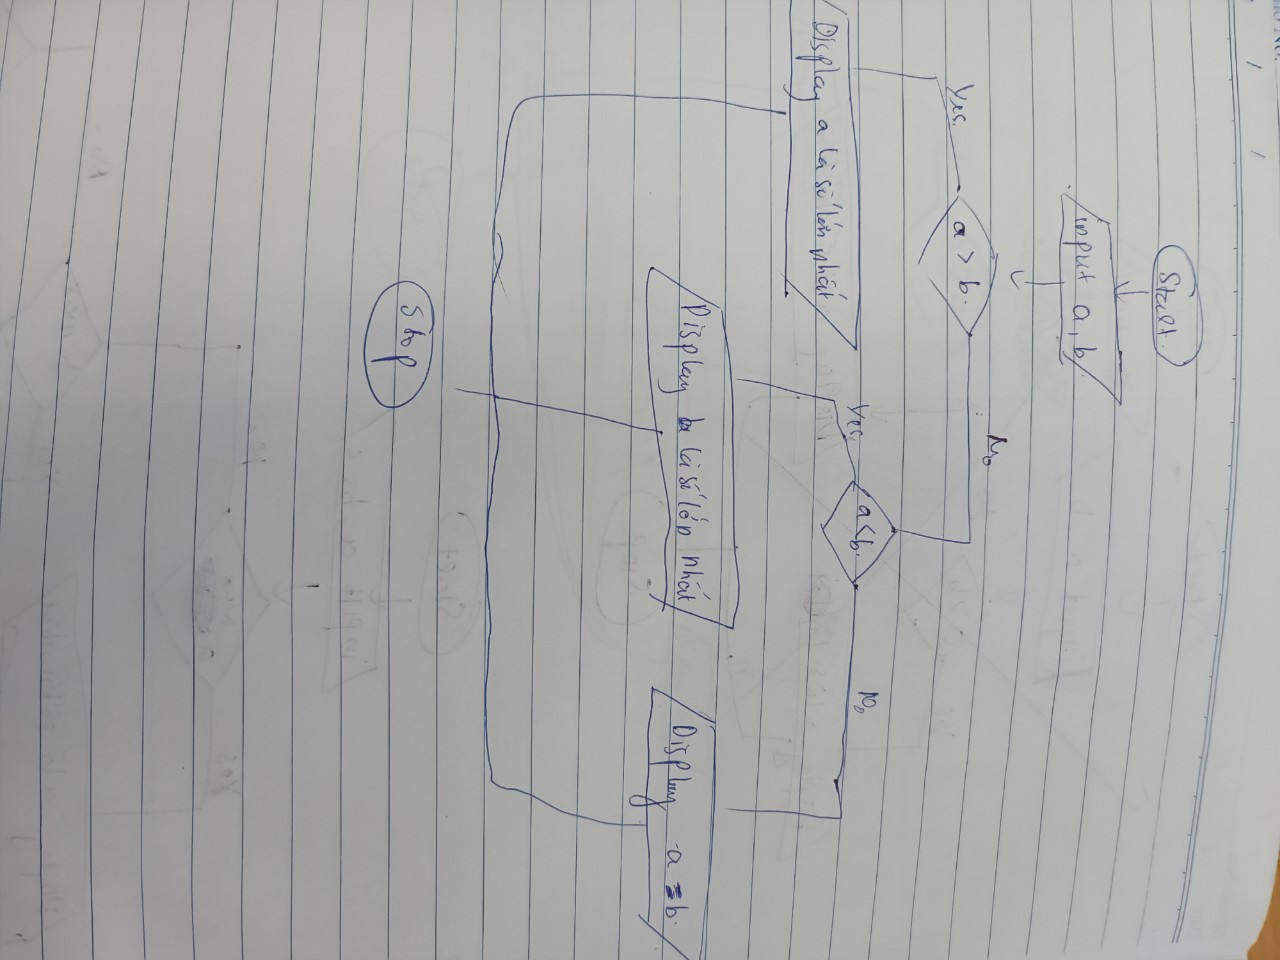 Start.
input a, b.
a > b.
Yes.
No
Display a là số lớn nhất
a < b.
Yes.
No
Display b là số lớn nhất
Display a = b.
Stop